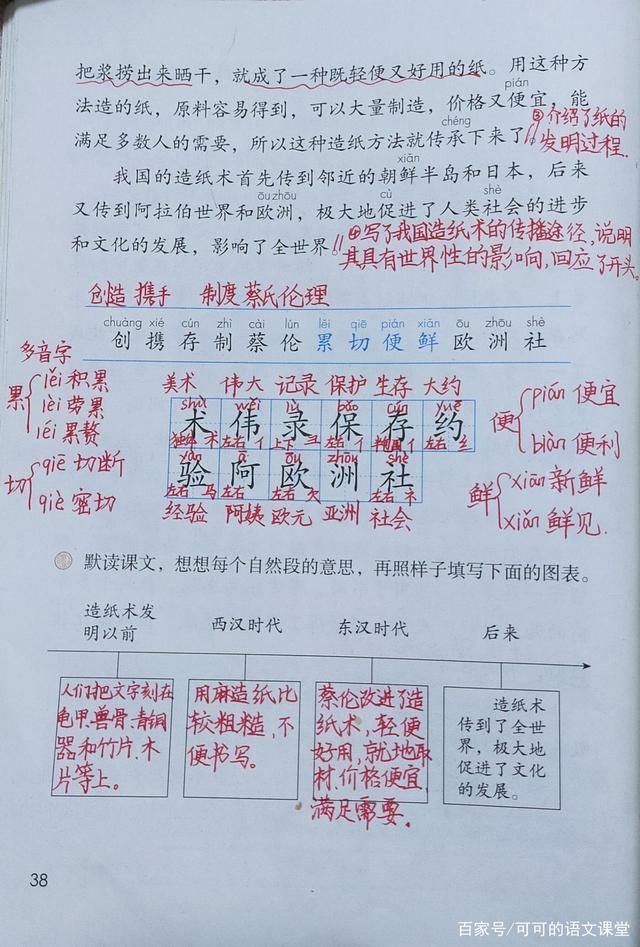 把浆捞出来晒干，就成了一种既轻便又好用的纸。用这种方
pián
法造的纸，原料容易得到，可以大量制造，价格又便宜，能
③介绍了纸的
chéng
满足多数人的需要，所以这种造纸方法就传承下来了。
发明过程.
xiǎn
我国的造纸术首先传到邻近的朝鲜半岛和日本，后来
ōu zhōu cù shè
又传到阿拉伯世界和欧洲，极大地促进了人类社会的进步
和文化的发展，影响了全世界。
④写了我国造纸术的传播途径，说明
其具有世界性的影响，回应了开头。
创造 携手 制度 蔡氏 伦理
chuàng xié cún zhì cài lún lěi qiē pián xiān ōu zhōu shè
创 携 存 制 蔡 伦 累 切 便 鲜 欧 洲 社
多音字
累 lěi 积累
lèi 劳累
léi 累赘
切 qiē 切断
qiè 密切
美术 伟大 记录 保护 生存 大约
shù wěi lù bǎo cún yuē
术 伟 录 保 存 约
独体 术 左右 亻 上下 左右 亻 半包围 左右 纟
yàn ā ōu zhōu shè
验 阿 欧 洲 社
左右 马 左右 左右 欠 左右 左右 礻
经验 阿姨 欧元 亚洲 社会
便 pián 便宜
biàn 便利
鲜 xiān 新鲜
xiǎn 鲜见.
默读课文，想想每个自然段的意思，再照样子填写下面的图表。
造纸术发
明以前
西汉时代
东汉时代
后来
人们把文字刻在
龟甲、兽骨、青铜
器和竹片、木
片等上。
用麻造纸比
较粗糙，不
便书写。
蔡伦改进了造
纸术，轻便
好用，就地取
材，价格便宜，
满足需要.
造纸术
传到了全世
界，极大地
促进了文化
的发展。
38
百家号/可可的语文课堂